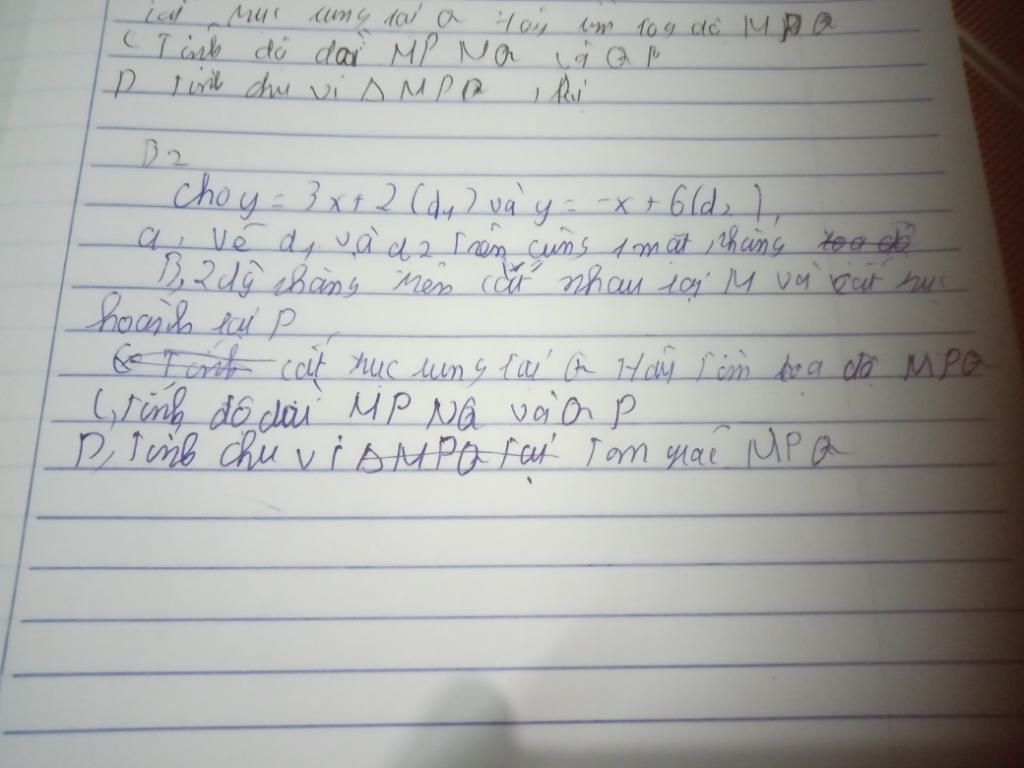 tại trục tung tại Q Hãy tìm toạ độ MPQ
C Tính độ dài MP NQ và QP
D Tính chu vi ΔMPQ
B2
Cho y = 3x + 2 (d1) và y = -x + 6 (d2),
a, Vẽ d1 và d2 trên cùng 1 mặt phẳng toạ độ
B, 2 đg thẳng trên cắt nhau tại M và cắt trục
hoành tại P
C Tính cắt trục tung tại Q Hãy Tìm toạ độ MPQ
C, Tính độ dài MP NQ và QP
D, Tính chu vi ΔMPQ tại Tam giác MPQ